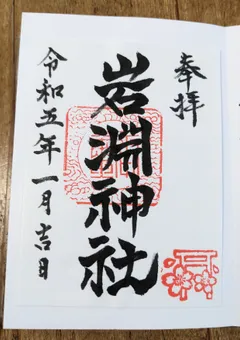 奉拝
岩淵神社
令和五年一月吉日